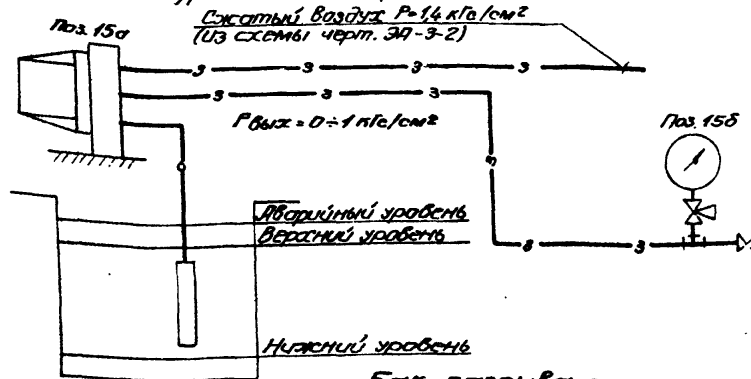 Сжатый воздух P=1,4 кгс/см²
(из схемы черт. ЭА-3-2)
Поз. 15а
3 3 3 3
3 3 3
Pвых = 0÷1 кгс/см²
Поз. 15б
3
Аварийный уровень
Верхний уровень
3 3
Нижний уровень